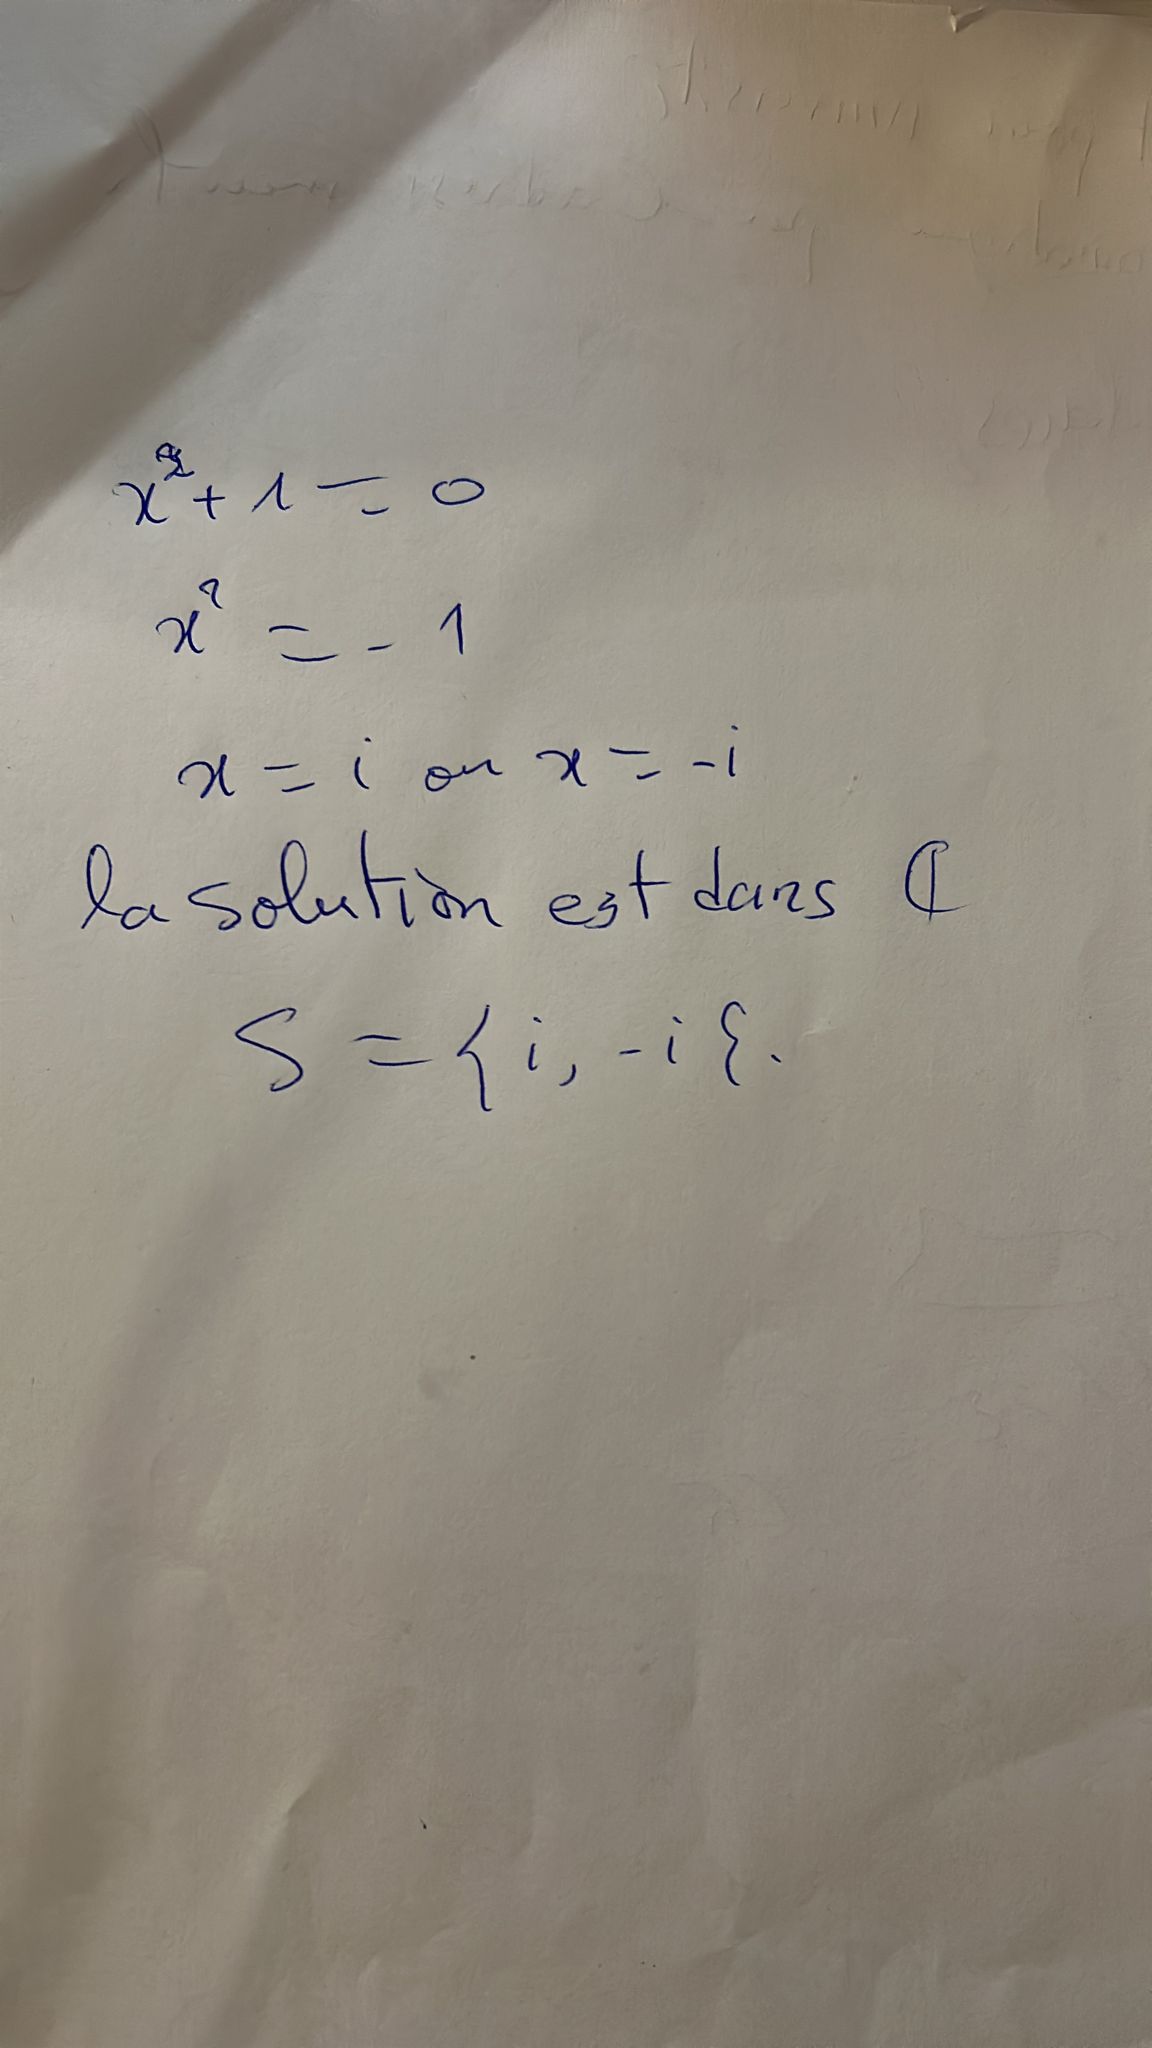 x² + 1 = 0
x² = - 1
x = i ou x = -i
la solution est dans ℂ
S = { i, -i }.